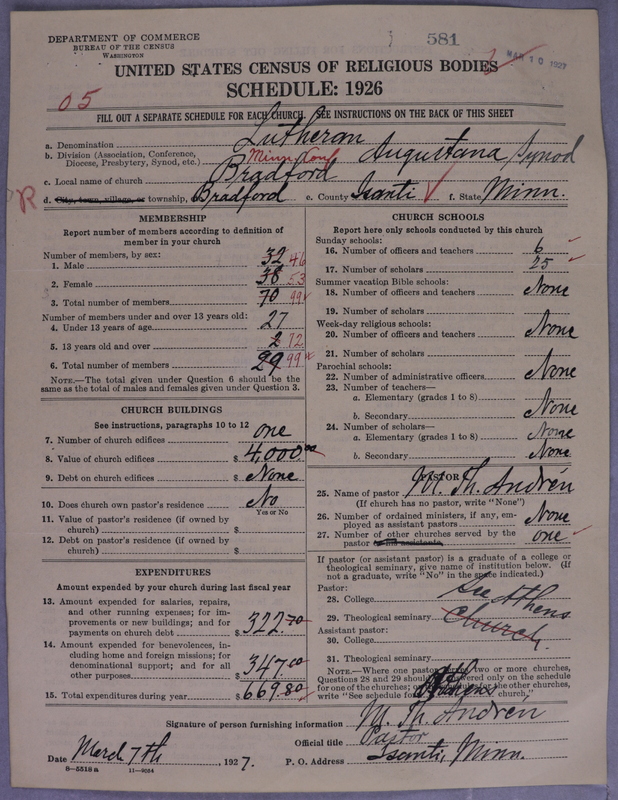 DEPARTMENT OF COMMERCE
BUREAU OF THE CENSUS
WASHINGTON
581
MAR 10 1927
UNITED STATES CENSUS OF RELIGIOUS BODIES
SCHEDULE: 1926
05
FILL OUT A SEPARATE SCHEDULE FOR EACH CHURCH. SEE INSTRUCTIONS ON THE BACK OF THIS SHEET
a. Denomination Lutheran
b. Division (Association, Conference, Diocese, Presbytery, Synod, etc.) Minn Conf Augustana Synod
c. Local name of church Bradford
R
d. City, town, village, or township, Bradford e. County Isanti f. State Minn.
MEMBERSHIP
Report number of members according to definition of
member in your church
Number of members, by sex:
1. Male 32 46
2. Female 38 53
3. Total number of members 70 99
Number of members under and over 13 years old:
4. Under 13 years of age 27
5. 13 years old and over 2 72
6. Total number of members 29 99
NOTE.—The total given under Question 6 should be
same as the total of males and females given under Question 3.
CHURCH BUILDINGS
See instructions, paragraphs 10 to 12
7. Number of church edifices one
8. Value of church edifices $ 4,000.00
9. Debt on church edifices $ None
10. Does church own pastor's residence No
Yes or No
11. Value of pastor's residence (if owned by
church) $
12. Debt on pastor's residence (if owned by
church) $
EXPENDITURES
Amount expended by your church during last fiscal year
13. Amount expended for salaries, repairs,
and other running expenses; for im-
provements or new buildings; and for
payments on church debt $ 322.70
14. Amount expended for benevolences, in-
cluding home and foreign missions; for
denominational support; and for all
other purposes $ 347.00
15. Total expenditures during year $ 669.80
CHURCH SCHOOLS
Report here only schools conducted by this church
Sunday schools:
16. Number of officers and teachers 6
17. Number of scholars 25
Summer vacation Bible schools:
18. Number of officers and teachers None
19. Number of scholars
Week-day religious schools:
20. Number of officers and teachers None
21. Number of scholars
Parochial schools:
22. Number of administrative officers None
23. Number of teachers—
a. Elementary (grades 1 to 8)
b. Secondary None
24. Number of scholars—
a. Elementary (grades 1 to 8) None
b. Secondary None
PASTOR
25. Name of pastor M. Th. Andrén
(If church has no pastor, write "None")
26. Number of ordained ministers, if any, em-
ployed as assistant pastors None
27. Number of other churches served by the
pastor one
If pastor (or assistant pastor) is a graduate of a college or
theological seminary, give name of institution below. (If
not a graduate, write "No" in the space indicated.)
Pastor:
28. College See Athens
29. Theological seminary Church.
Assistant pastor:
30. College
31. Theological seminary
NOTE.—Where one pastor serves two or more churches,
Questions 28 and 29 should be answered only on the schedule
for one of the churches; on schedules for the other churches,
write "See schedule for Athens church."
Signature of person furnishing information M. Th. Andrén
Official title Pastor
Date March 7th, 1927. P. O. Address Isanti, Minn.
8—5518 a 11—9084